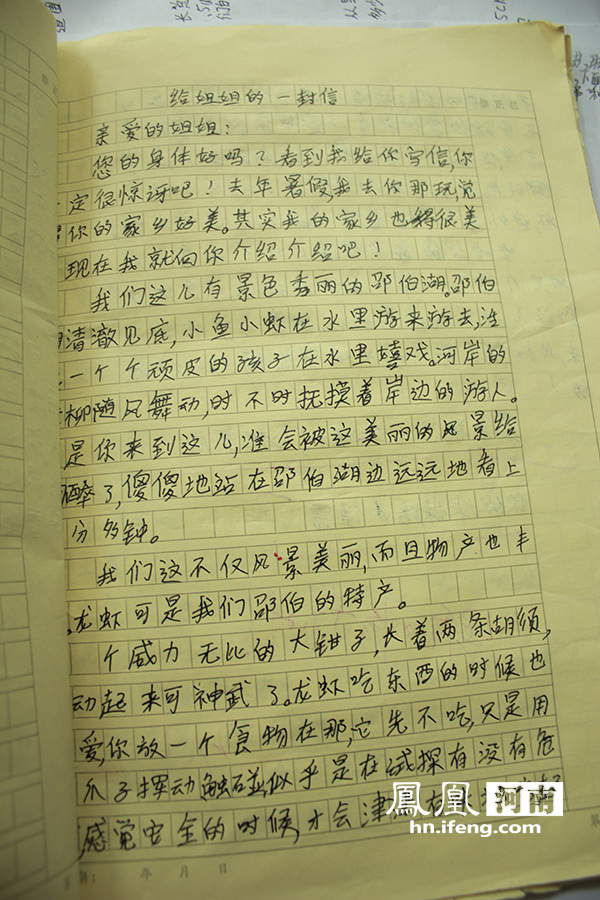 给姐姐的一封信
亲爱的姐姐：
您的身体好吗？看到我给你写信，你
定很惊讶吧！去年暑假，我去你那玩，觉
你的家乡好美。其实我的家乡也很美
现在我就向你介绍介绍吧！
我们这儿有景色秀丽的邵伯湖。邵伯
清澈见底，小鱼小虾在水里游来游去，准
一个个顽皮的孩子在水里嬉戏。河岸的
柳随风舞动，时不时抚摸着岸边的游人。
是你来到这儿，准会被这美丽的风景给
醉了，傻傻地站在邵伯湖边远远地看上
分多钟。
我们这不仅风景美丽，而且物产也丰
。龙虾可是我们邵伯的特产。
个威力无比的大钳子，长着两条胡须，
动起来可神武了。龙虾吃东西的时候也
爱，你放一个食物在那，它先不吃，只是用
爪子挥动触碰似乎是在试探有没有危
，感觉安全的时候，才会津
凤凰 河南
hn.ifeng.com
年 月 日